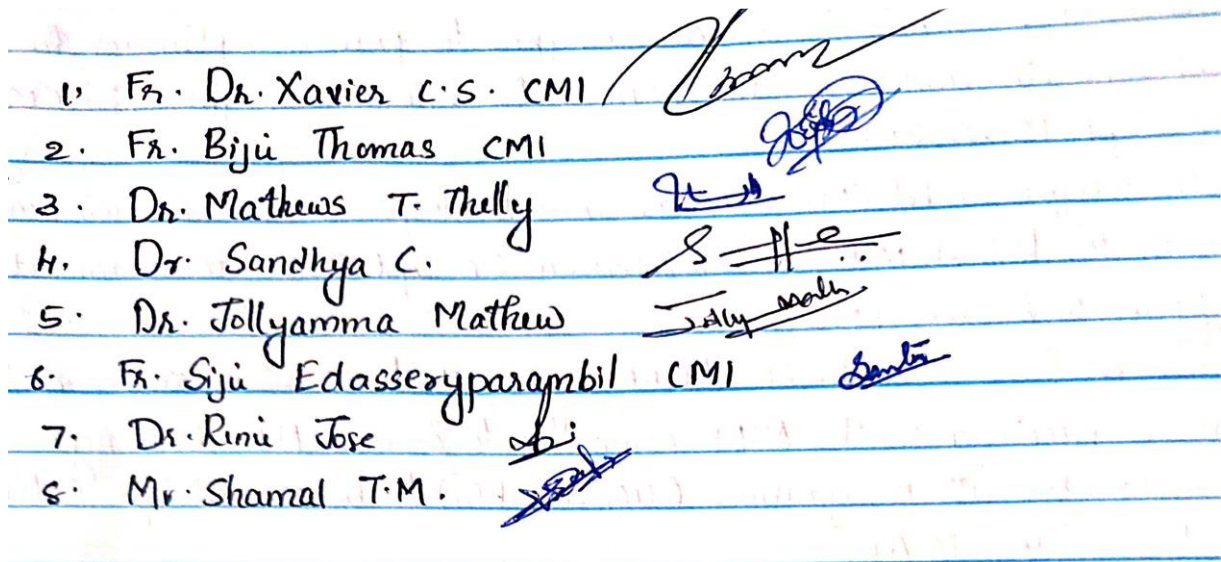 1. Fr. Dr. Xavier C.S. CMI
2. Fr. Biju Thomas CMI
3. Dr. Mathews T. Thelly
4. Dr. Sandhya C.
5. Dr. Jollyamma Mathew Jolly
6. Fr. Siju Edasseryparambil CMI
7. Dr. Rinu Jose
8. Mr. Shamal T.M.